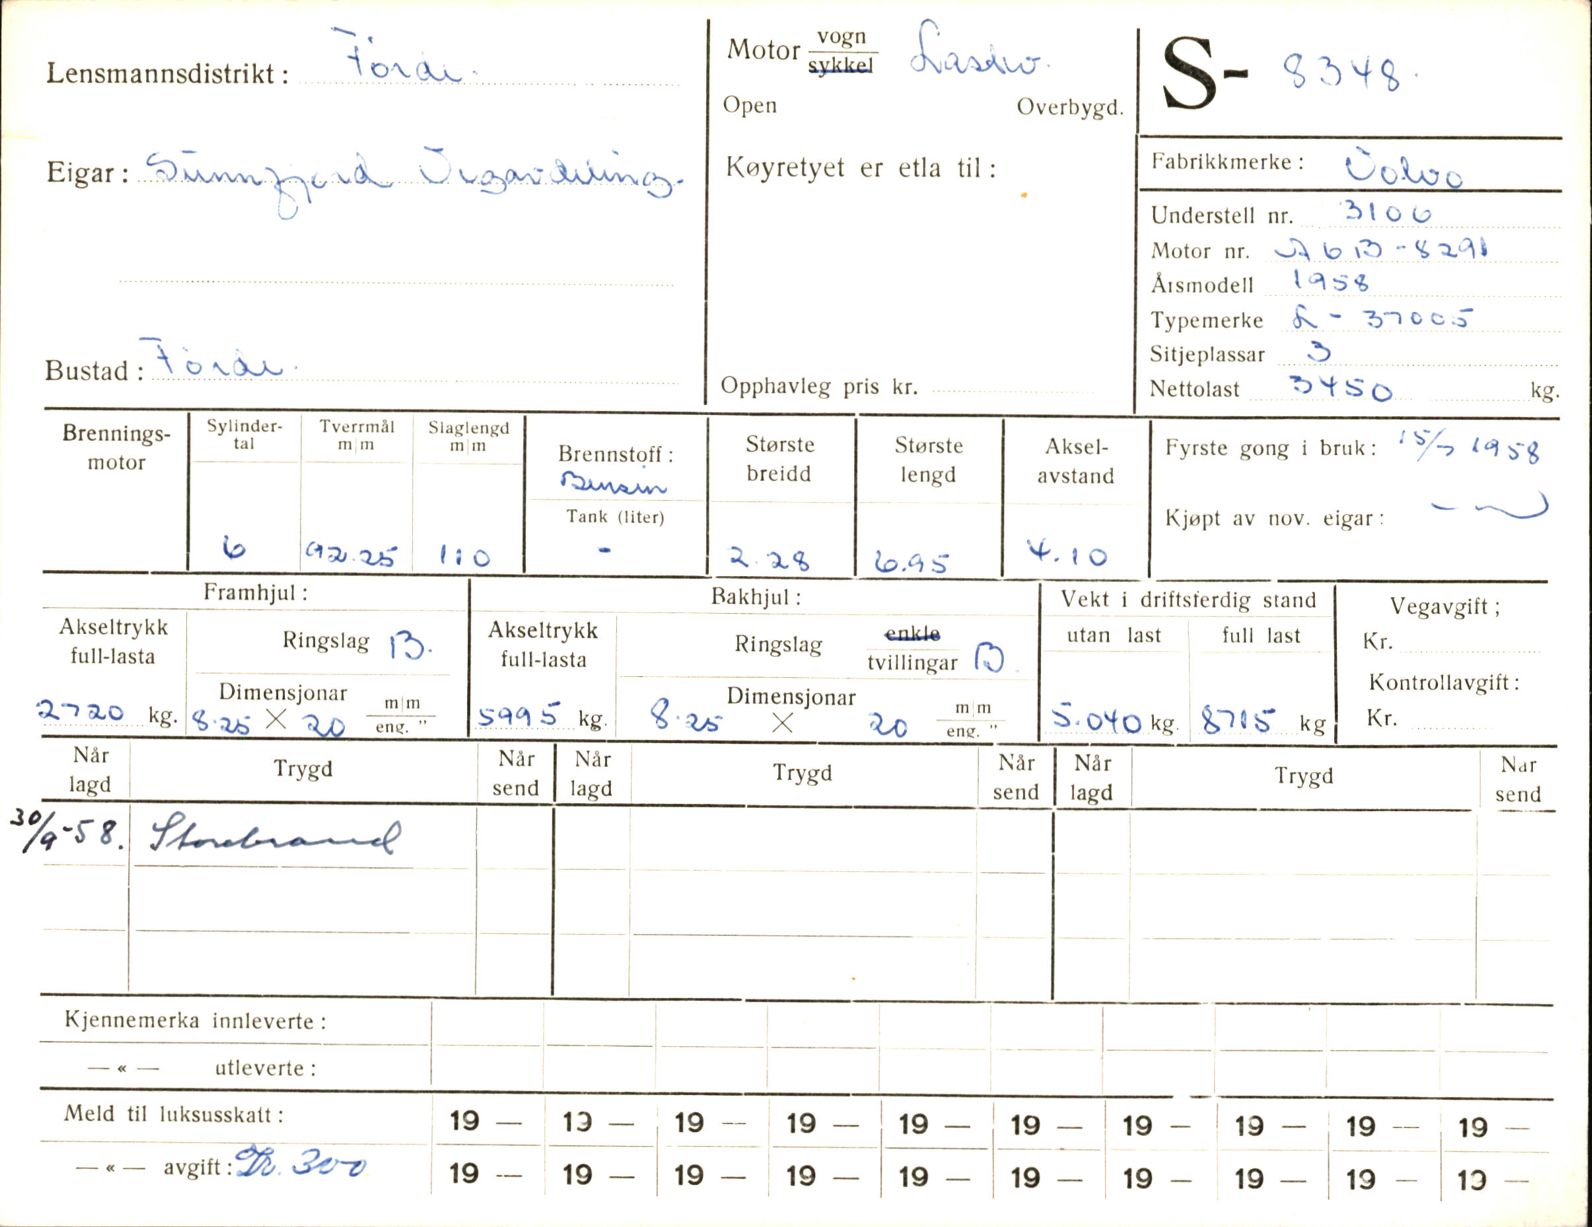 Lensmannsdistrikt: Förde.
Eigar: Sunnfjord Vegavdeling.
Bustad: Förde.
Motor vogn
sykkel
Open Overbygd.
Køyretyet er etla til:
Opphavleg pris kr.
S- 8348.
Fabrikkmerke: Volvo
Understell nr. 3106
Motor nr. A6B-8291
Årsmodell 1958
Typemerke L-37005
Sitjeplassar 3
Nettolast 3450 kg.
Brennings-
motor
Sylinder-
tal
6
Tverrmål
m|m
92.25
Slaglengd
m|m
110
Brennstoff:
Bensin
Tank (liter)
-
Største
breidd
2.28
Største
lengd
6.95
Aksel-
avstand
4.10
Fyrste gong i bruk: 15/7 1958
Kjøpt av nov. eigar:
Framhjul:
Akseltrykk
full-lasta
2720 kg.
Ringslag B.
Dimensjonar m|m
8.25 × 20 eng. "
Bakhjul:
Akseltrykk
full-lasta
5995 kg.
Ringslag enkle
tvillingar B
Dimensjonar m|m
8.25 × 20 eng. "
Vekt i driftsferdig stand
utan last full last
5.040 kg. 8715 kg
Vegavgift;
Kr.
Kontrollavgift:
Kr.
Når
lagd Trygd Når
send Når
lagd Trygd Når
send Når
lagd Trygd Når
send
30/9-58. Storebrand
Kjennemerka innleverte:
— « — utleverte:
Meld til luksusskatt: 19 — 19 — 19 — 19 — 19 — 19 — 19 — 19 — 19 — 19 —
— « — avgift: Kr. 300 19 — 19 — 19 — 19 — 19 — 19 — 19 — 19 — 19 — 19 —